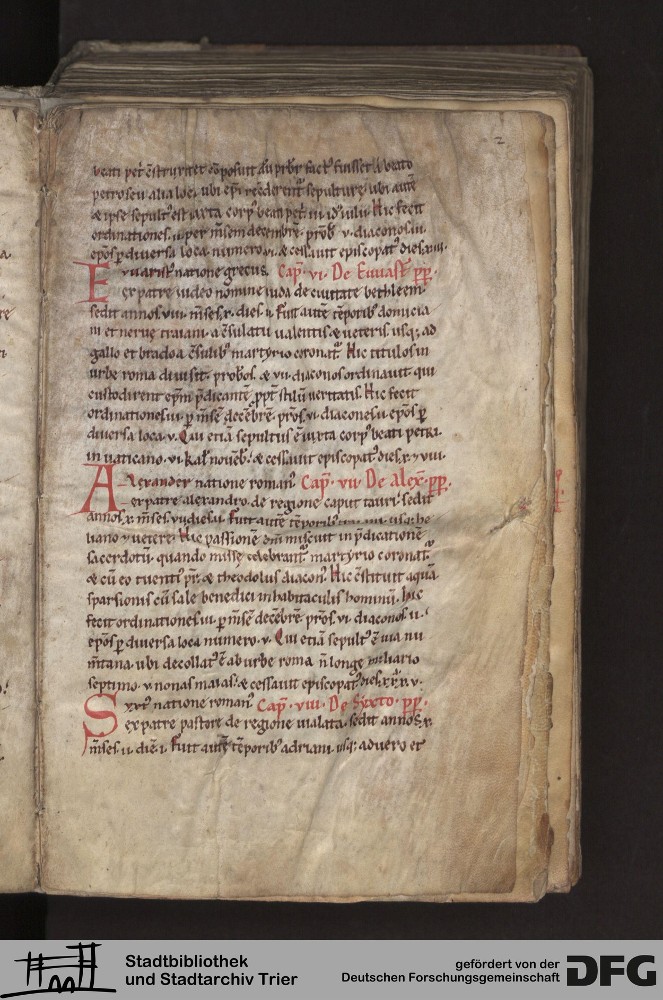 2
beati petri c̄struxit et cōposuit dū prƀr factꝰ fuisset a beato
petro seu alia loca ubi ep̄i reconderentꝰ sepulturę. ubi autē
& ipse sepultꝰ est iuxta corpꝰ beati petri iii idꝰ iulii. Hic fecit
ordinationes .ii. per m̄sem decembrē. prƀōs .v. diaconos .iii.
ep̄os ꝑ diuersa loca numero .vi. & cessauit episcopatꝰ dies
Euuaristꝰ natione grecus. Cap̄ .vi. De Euuast̄ pp̄.
Ex patre iudeo nomine iuda de ciuitate bethleem.
sedit annos .viiii. m̄ses .x. dies .ii. Fuit autē tēporibꝰ domicia
ni et neruę traiani. a c̄sulatu ualentis. & ueteris. usq; ad
gallo et bradoa c̄sulibꝰ martyrio coronatꝰ. Hic titulos in
urbe roma diuisit. prƀōs. & vii. diaconos ordinauit. qui
custodirent ep̄m p̄dicantē. ꝓpt̄ stilū ueritatis. Hic fecit
ordinationes .iii. ꝑ m̄sē decēbrē. prōs .vi. diacones .ii. ep̄os ꝑ
diuersa loca .v. Qui etiā sepultus ē iuxta corpꝰ beati petri.
in uaticano .vi. kal̄ nouēb̄. & cessauit episcopatꝰ dies
Alexander natione romanꝰ. Cap̄ .vii. De Alex̄. pp̄.
ex patre alexandro. de regione caput tauri. sedit
annos .x. m̄ses .vii. dies .ii. Fuit autē tēporibꝰ
liano & uetere. Hic passionē dn̄i miscuit in p̄dicationē
sacerdotū. quando missę celebrantꝰ. martyrio coronatꝰ.
& cū eo euentiꝰ pr̄. & theodolus diaconꝰ. Hic c̄stituit aquā
sparsionis cū sale benedici in habitaculis hominū. hic
fecit ordinationes .iii. ꝑ m̄sē decēbrē. prōs .vi. diaconos .ii.
ep̄os ꝑ diuersa loca numero .v. Qui etiā sepultꝰ ē uia nu
m̄tana. ubi decollatꝰ ē ab urbe roma n̄ longe miliario
septimo. v nonas maias. & cessauit episcopatꝰ dies .xxx.v.
Sixtꝰ natione romanꝰ. Cap̄ .viii. De Syxto. pp̄.
ex patre pastore de regione uialata. sedit annos .x.
m̄ses .ii. diē .i. Fuit autē tēporibꝰ adriani usq; ad uero et
Stadtbibliothek
und Stadtarchiv Trier
gefördert von der
Deutschen Forschungsgemeinschaft
DFG